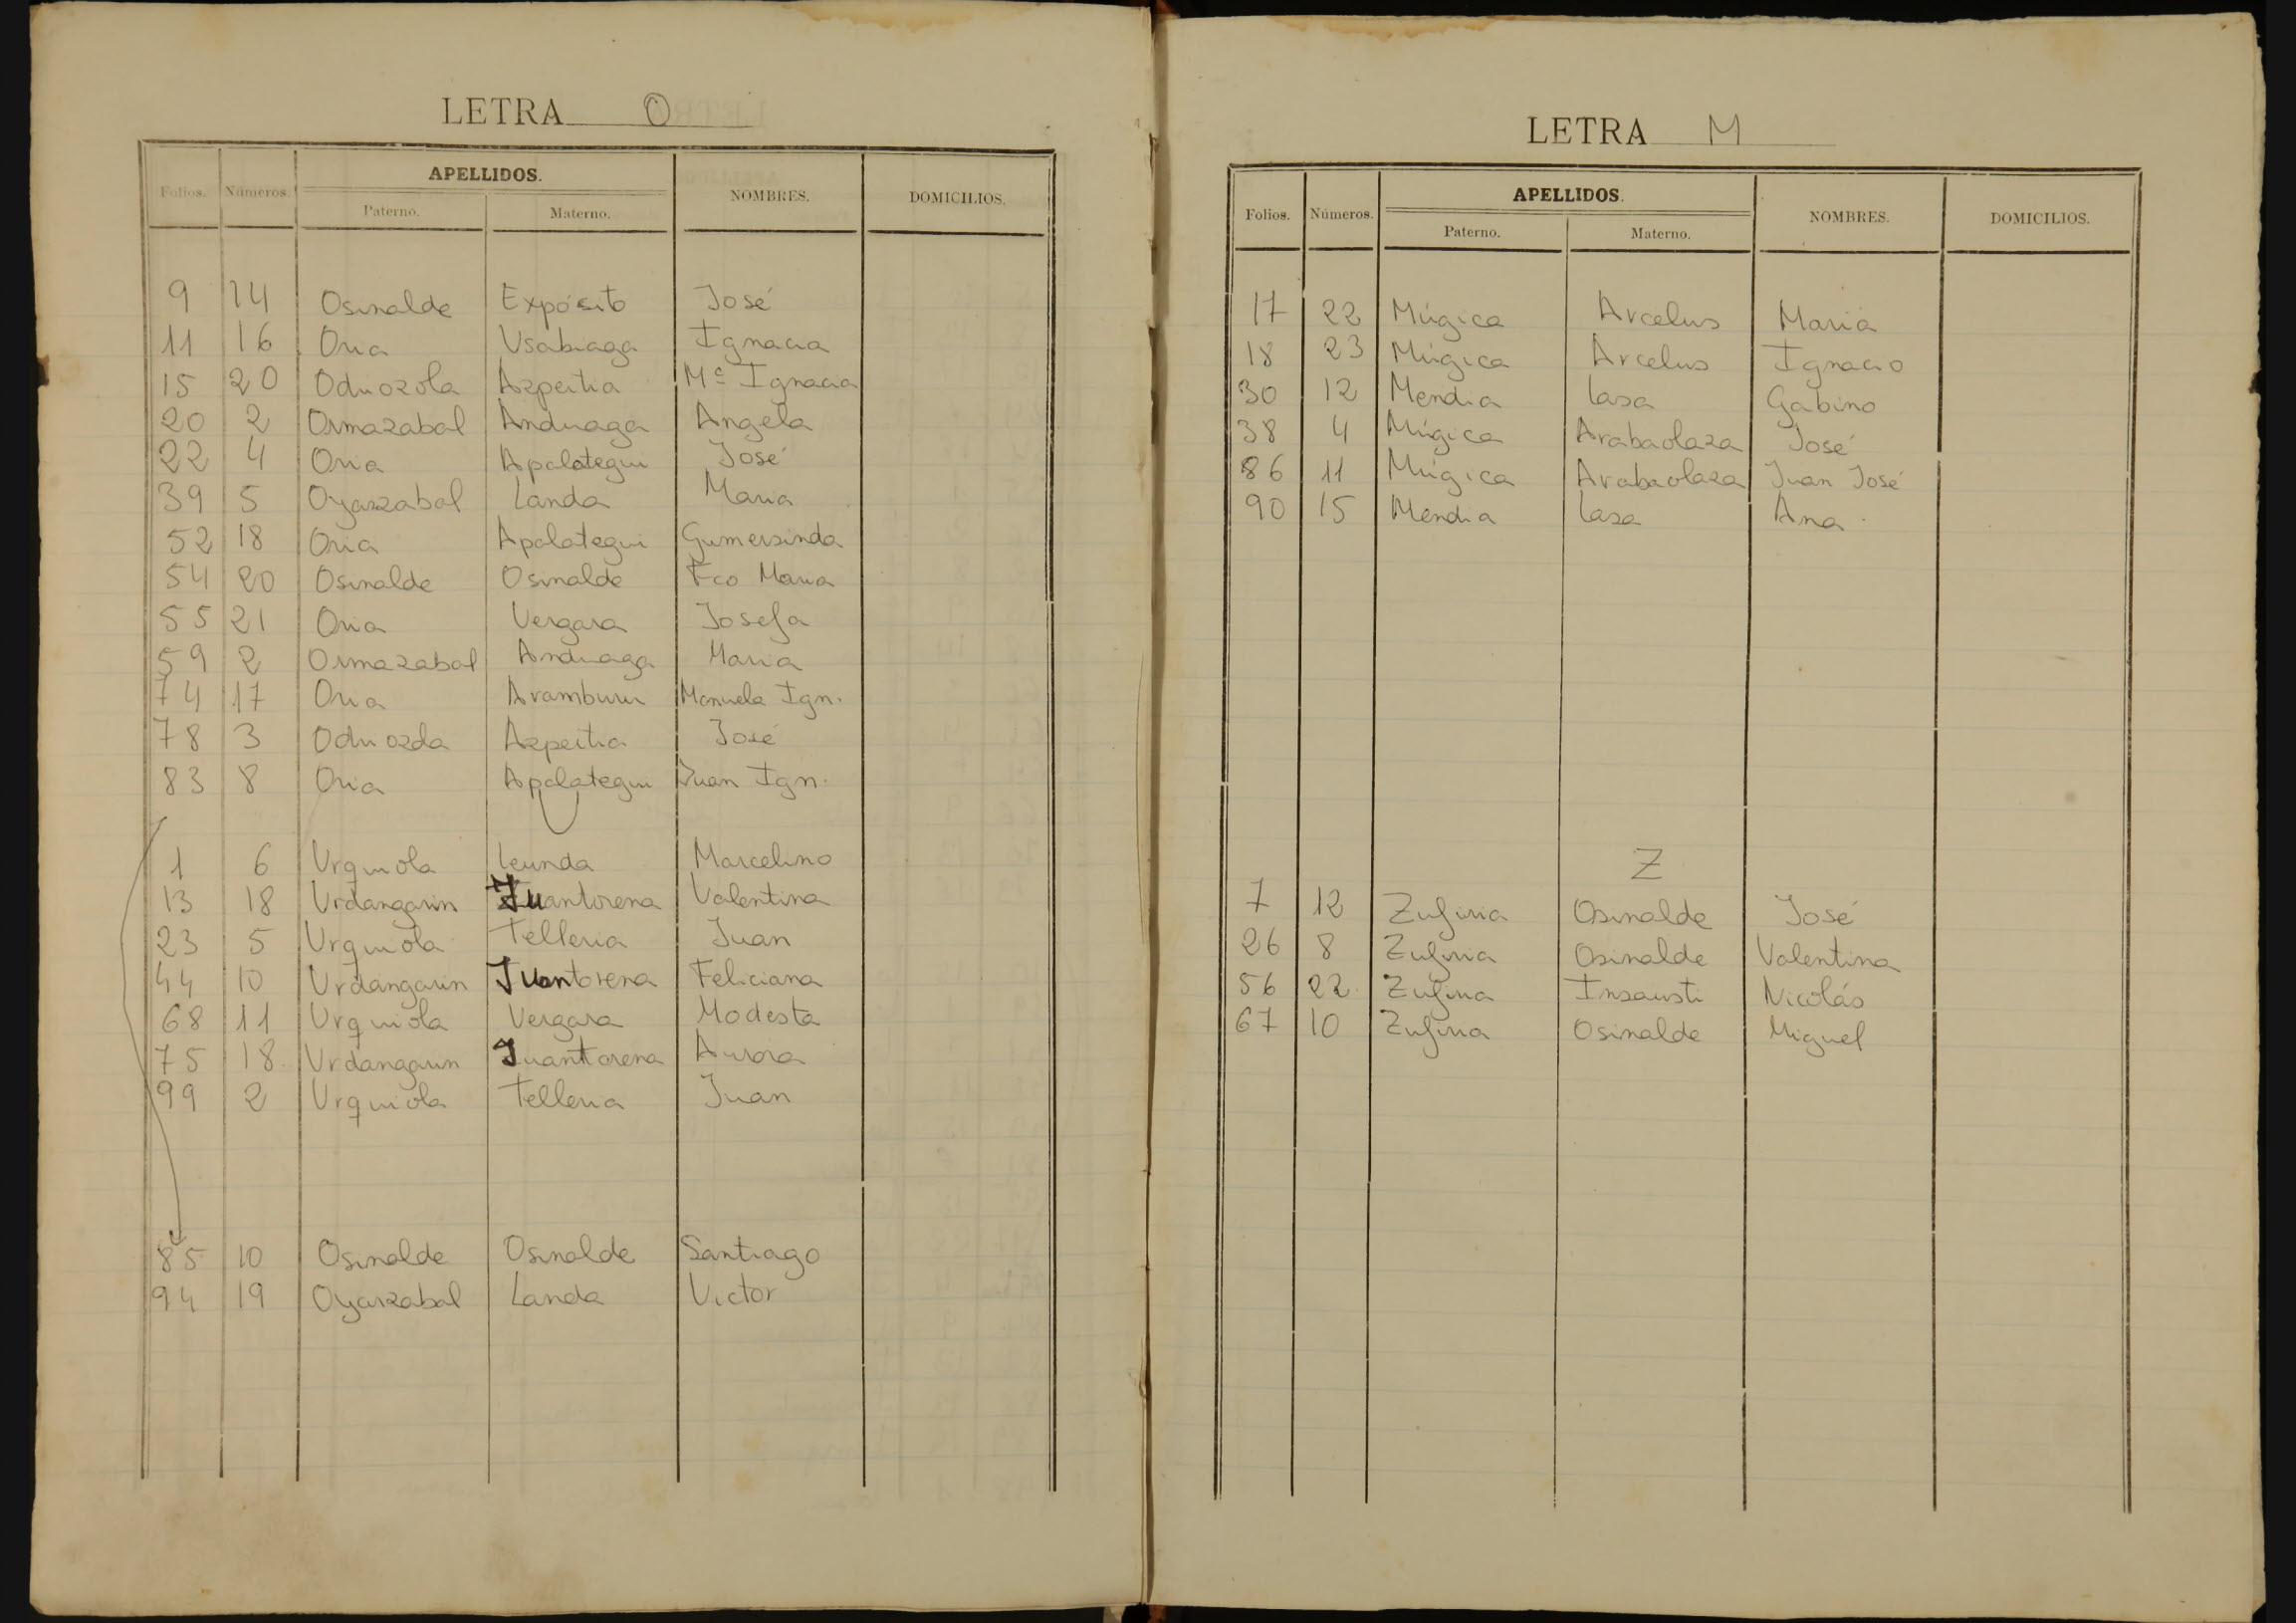 LETRA O
APELLIDOS.
Folios. Números. Paterno. Materno. NOMBRES. DOMICILIOS.
9 14 Osinalde Expósito José
11 16 Oria Usabiaga Ignacia
15 20 Odriozola Azpeitia Mª Ignacia
20 2 Ormazabal Anduaga Angela
22 4 Oria Apalategui José
39 5 Oyarzabal Landa Maria
52 18 Oria Apalategui Gumersinda
54 20 Osinalde Osinalde Fco Maria
55 21 Oria Vergara Josefa
59 2 Ormazabal Anduaga Maria
74 17 Oria Aramburu Manuela Ign.
78 3 Odriozola Azpeitia José
83 8 Oria Apalategui Juan Ign.
U
1 6 Urquiola Leunda Marcelino
13 18 Urdangarin Juantorena Valentina
23 5 Urquiola Telleria Juan
44 10 Urdangarin Juantorena Feliciana
68 11 Urquiola Vergara Modesta
75 18 Urdangarin Juantorena Aurora
99 2 Urquiola Telleria Juan
85 10 Osinalde Osinalde Santiago
94 19 Oyarzabal Landa Victor
LETRA M
APELLIDOS.
Folios. Números. Paterno. Materno. NOMBRES. DOMICILIOS.
17 22 Múgica Arcelus Maria
18 23 Múgica Arcelus Ignacio
30 12 Mendia Lasa Gabino
38 4 Múgica Arabaolaza José
86 11 Múgica Arabaolaza Juan José
90 15 Mendia Lasa Ana
Z
7 12 Zufiria Osinalde José
26 8 Zufiria Osinalde Valentina
56 22 Zufiria Insausti Nicolás
67 10 Zufiria Osinalde Miguel